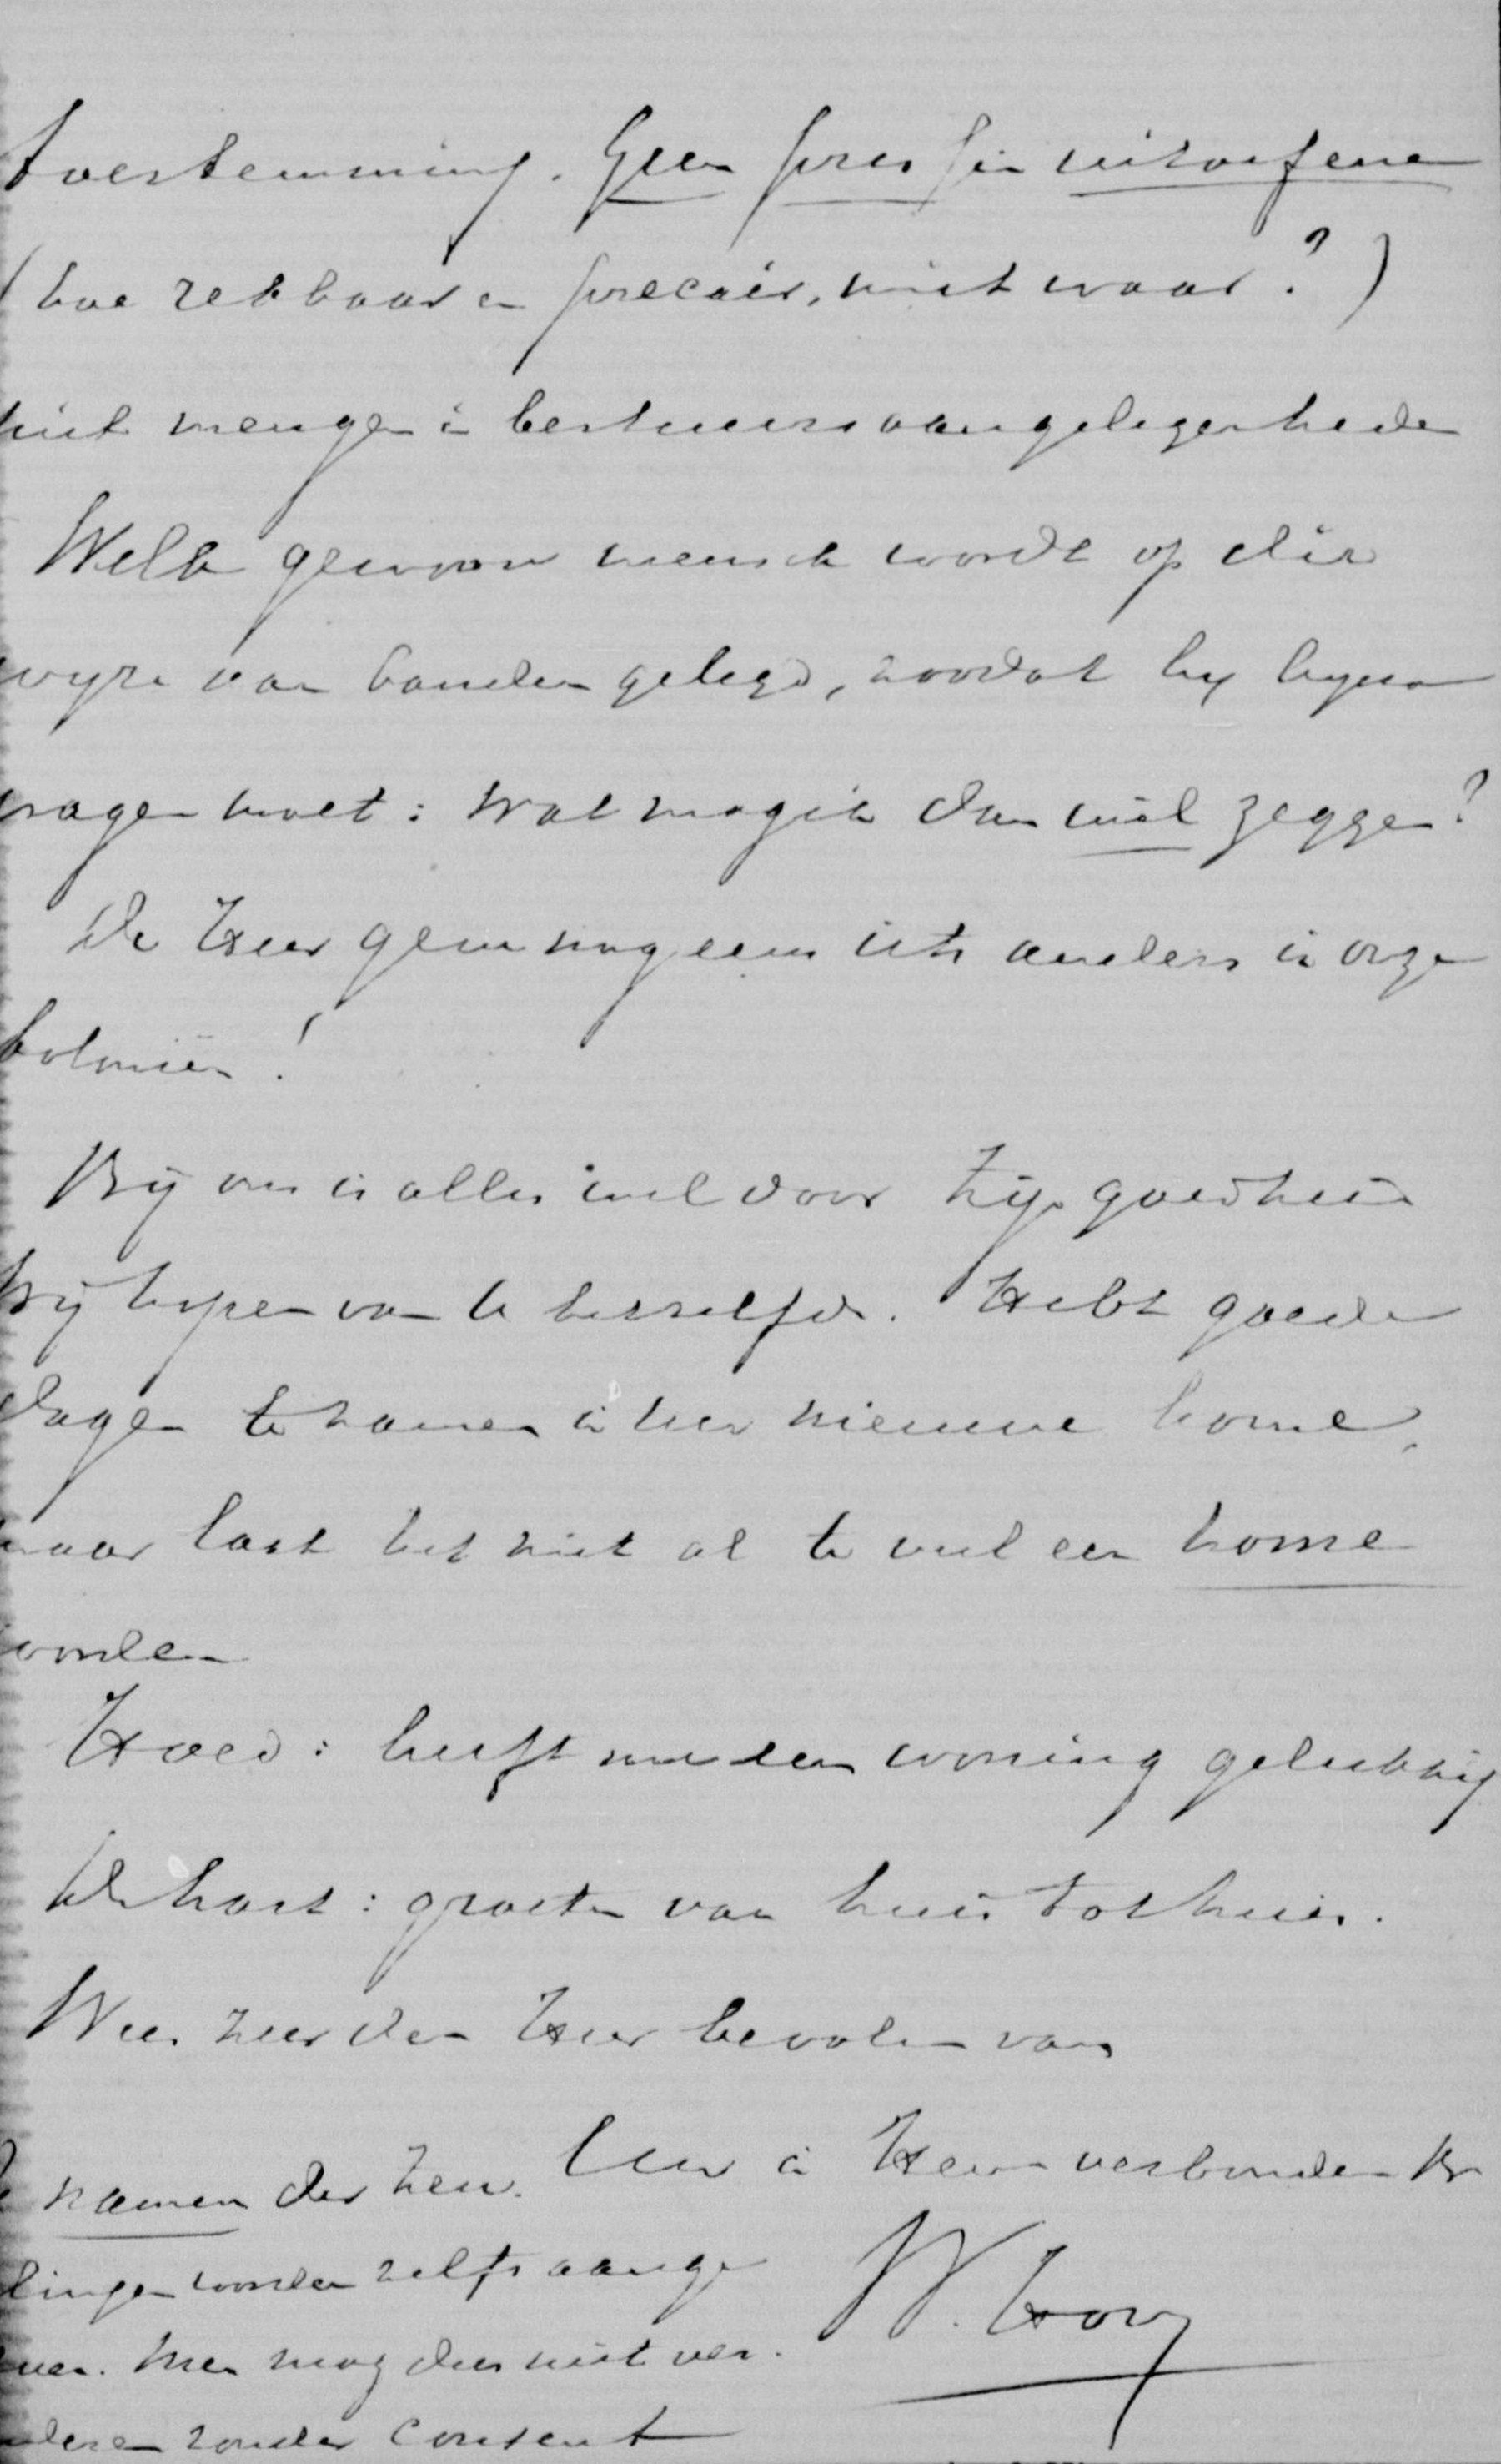 toestemming. Geen pressie uitoefenen
(hoe rekbaar en precair, niet waar?)
niet mengen in bestuursaangelegenheden
Welk gewoon mensch wordt op die
wyze aan banden gelegd, zoodat hy byna
vragen moet: Wat mag ik dan wel zeggen?
De Heer geve nog eens iets anders in onze
koloniën!
Bij ons is alles wel door Zijn goedheid
Wij hopen van U hetzelfde. Hebt goede
dagen te zamen in uw nieuwe home,
maar laat het niet al te veel een home
worden
Hoed: heeft nu een woning gelukkig
De hart: groeten van huis tot huis.
Wees zeer den Heer bevolen van
Uw in Hem verbonden Br
W. Hovy
namen der zen.
lingen worden zelfs aange
ven. Men mag dus niet ver.
deren zonder consent